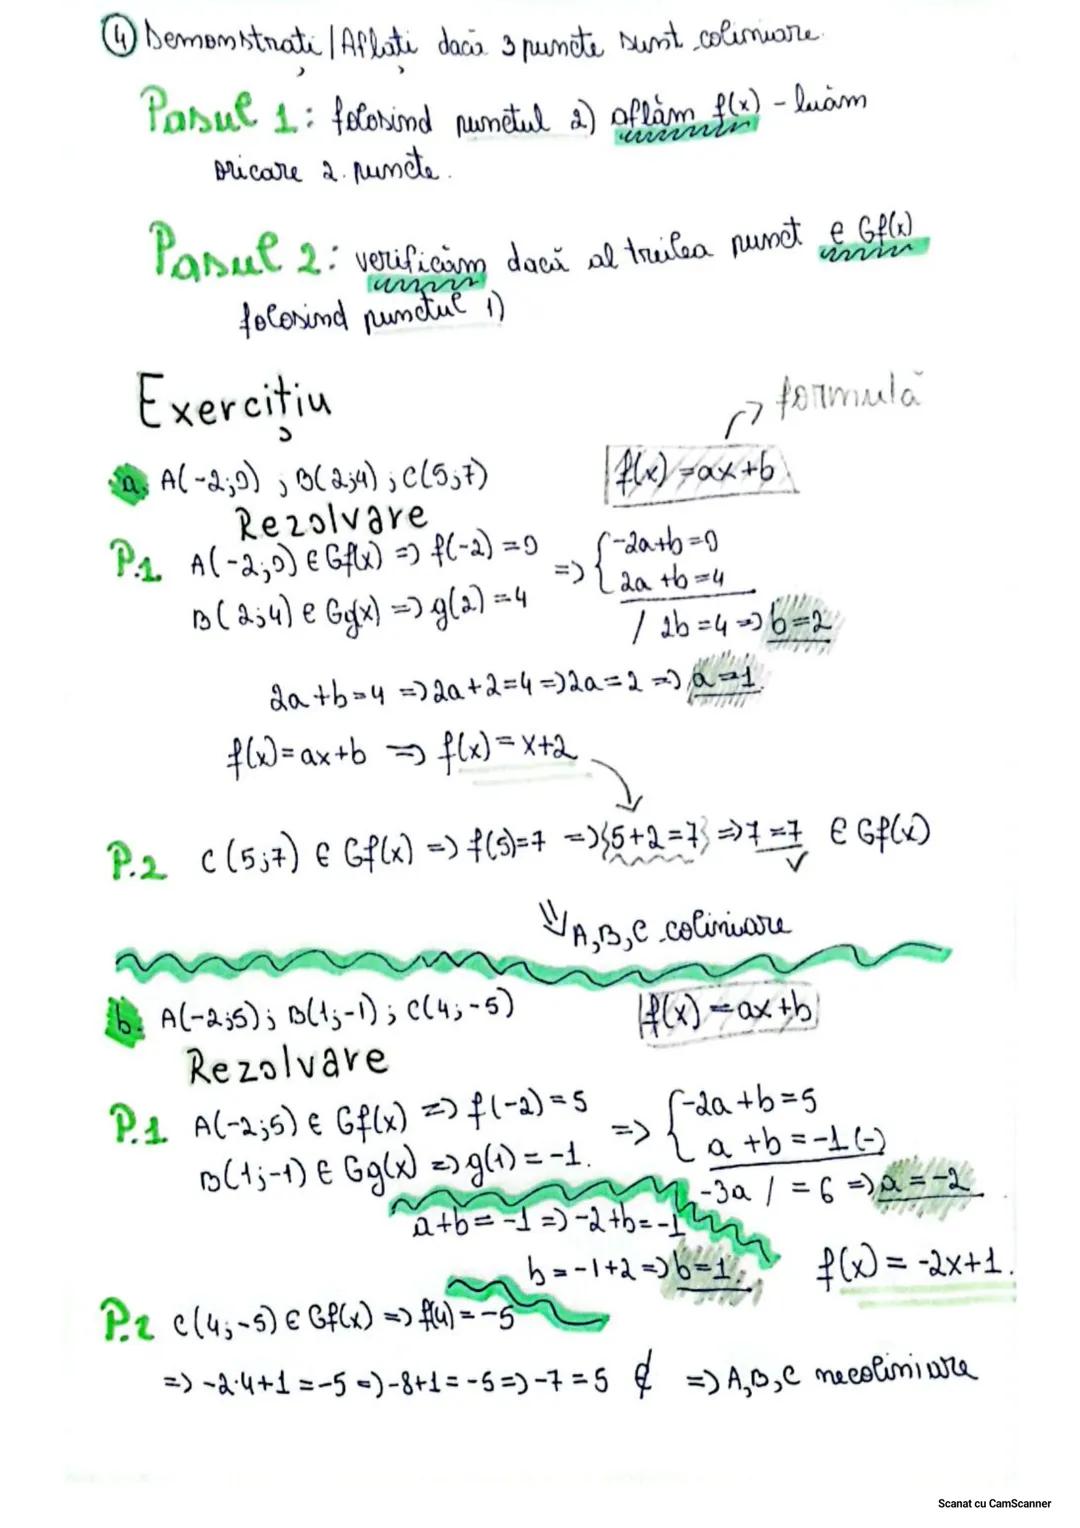 ④ Demonstrați / Aflați dacă 3 puncte sunt coliniare.
Pasul 1: folosind punctul 2) aflăm f(x) - luăm
oricare 2. puncte.
Pasul 2: verificăm dacă al treilea punct ∈ Gf(x)
folosind punctul 1)
Exercițiu
formulă
a. A(-2;0) ; B(2;4) ; C(5;7)
f(x) = ax+b
Rezolvare
P.1 A(-2;0) ∈ Gf(x) => f(-2) = 0 => { -2a+b=0
B(2;4) ∈ Gg(x) => g(2) = 4 2a+b=4
/ 2b = 4 => b=2
2a+b=4 => 2a+2=4 => 2a=2 => a=1
f(x)=ax+b => f(x)=x+2
P.2 C(5;7) ∈ Gf(x) => f(5)=7 => {5+2=7} => 7=7 ∈ Gf(x)
✓
⇓ A,B,C coliniare
b. A(-2;5); B(1;-1); C(4;-5) f(x)=ax+b
Rezolvare
P.1 A(-2;5) ∈ Gf(x) => f(-2)=5 => { -2a+b=5
B(1;-1) ∈ Gg(x) => g(1)=-1. a+b=-1 (-)
-3a / = 6 => a=-2
a+b=-1 => -2+b=-1
b=-1+2 => b=1. f(x) = -2x+1.
P.2 C(4;-5) ∈ Gf(x) => f(4)=-5
=> -2·4+1=-5 => -8+1=-5 => -7=5 ∉ => A,B,C necoliniare
Scanat cu CamScanner